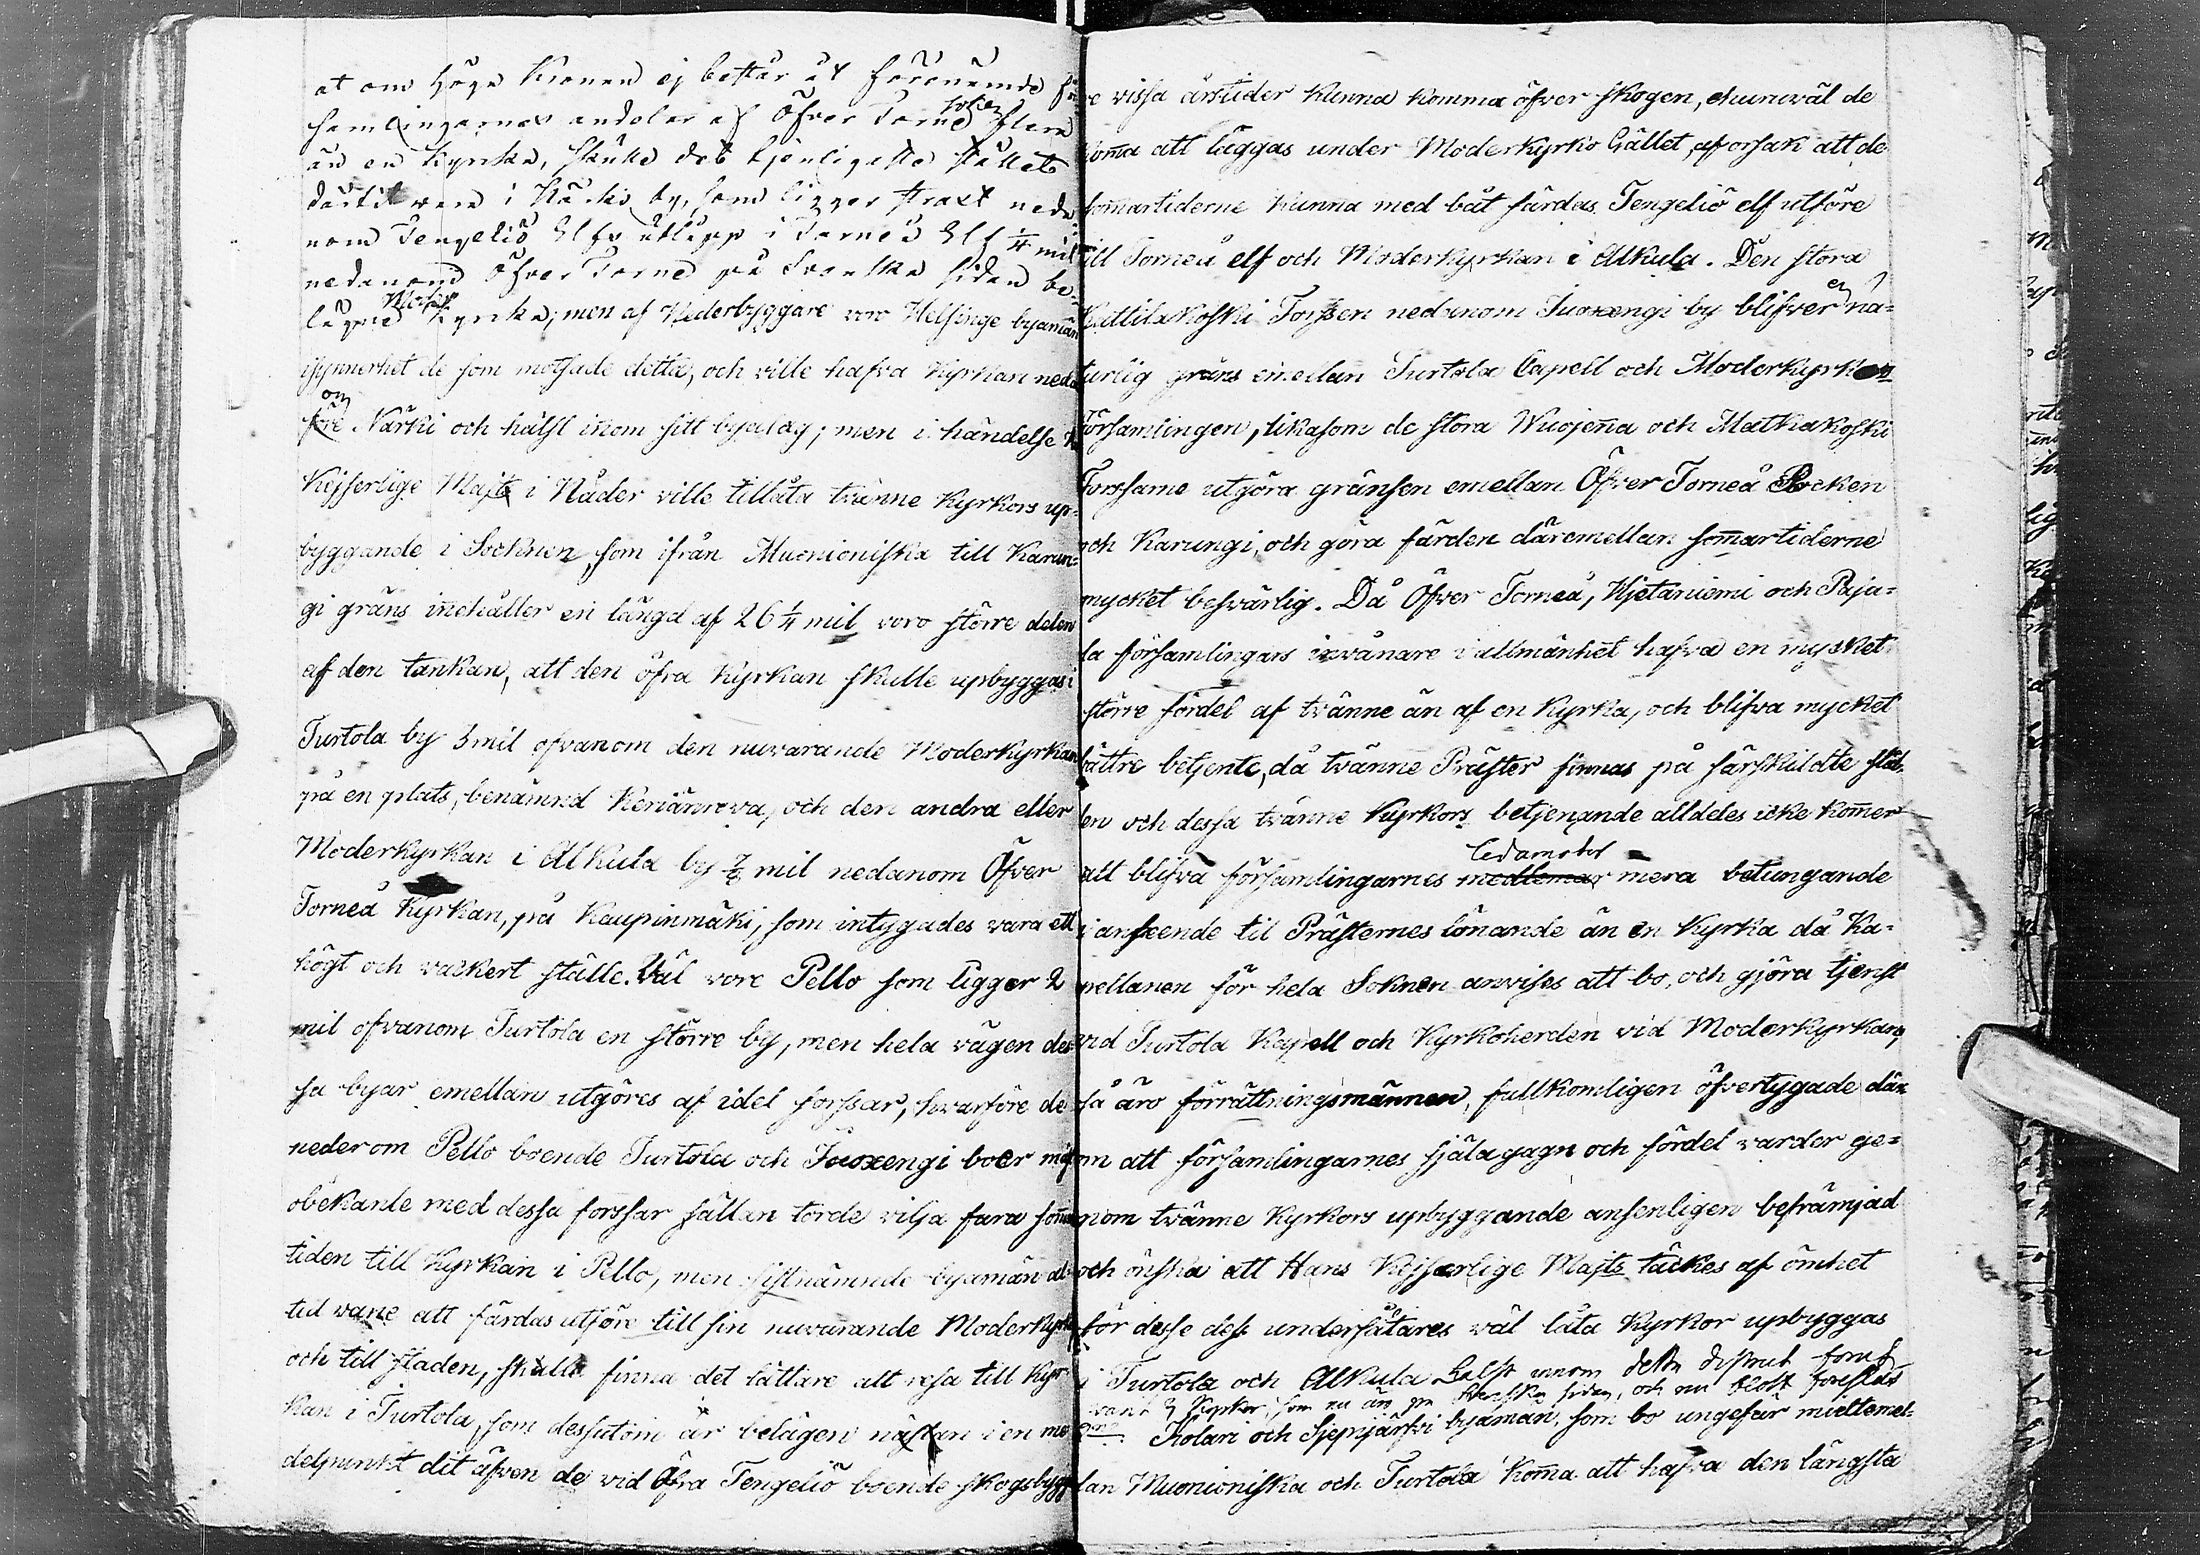 at om Höga Kronan ej består åt förenämde för
samlingarnes andelar af Öfver Torneå Sokn flera
än en Kyrka, skulle det tjenligaste stället
dertil vara i Närki by, som ligger straxt neda
nom Tengeliö Elfs utlopp i Torneå Elf ¼ mil
nedanom Öfver Torneå på Svenska sidan be-
lägne Moder Kyrka; men af Nederbyggare voro Helsinge byamän
isynnerhet de som motsade detta, och ville hafva Kyrkan neda
om Närki och hälst inom sitt byalag; men i händelse
Kejserlige Majts i Nåder ville tillåta tvänne Kyrkors up-
byggande i Socknen, som ifrån Muonioniska till Karun-
gi gräns inehåller en längd af 26 ¼ mil voro större delen
af den tankan, att den öfra Kyrkan skulle upbyggas i
Turtola by 3 mil ofvanom den nuvarande Moderkyrkan
på en plats, benämnd Keniänrova, och den andra eller
Moderkyrkan i Alkula by mil nedanom Öfver
Torneå Kyrkan, på Kaupinmäki, som intygades vara ett
högt och vackert ställe. Väl vore Pello som ligger 2
mil ofvanom Turtola en större by, men hela vägen des
sa byar emellan utgöres af idel forssar, hvarföre de
nederom Pello boende Turtola och Juoxengi boer
obekante med dessa forssar sällan torde vilja fara
tiden till Kyrkan i Pello, men sistnämnde byamän al
tid vane att färdas utföre till sin nuvarande Moderkyrka
och till staden, skulle finna det lättare att resa till Kyr
kan i Turtola, som dessutom är belägen nästan i en me
delpunkt dit äfven de vid Öfra Tengeliö boende skogsbygg
re vissa årstider kunna komma öfver skogen, churuväl de
koma att läggas under Moderkyrko Gället, af orsak att de
somartiderne kunna med båt färdas Tengeliö elf utföre
till Torneå elf och Moderkyrkan i Alkula. Den stora
Kattilakoski Forssen nedanom Juoxengi by blifver en na-
turlig gräns emellan Turtola Capell och Moderkyrko
Församlingen, likasom de stora Wuojena och Matkakoski
Forssarne utgöra gränsen emellan Öfver Torneå Socken
och Karungi, och göra färden däremellan somartiderne
mycket besvärlig. Då Öfver Torneå, Hjetaniemi och Paja-
la församlingars invånare i allmänhet hafva en mycket
större fördel af tvänne än af en Kyrka, och blifva mycket
bättre betjente, då tvänne Präster finnas på särskildte stäl-
len och dessa tvänne Kyrkors betjenande alldeles icke komer
att blifva församlingarnes medlemar Ledamoter mera betungande
i anseende til Prästernes lönande än en Kyrka då Ka-
pellanen för hela Soknen anvises att bo, och gjöra tjenst
vid Turtola Kapell och Kyrkoherden vid Moderkyrkan,
så äro förrättningsmännen, fullkomligen öfvertygade där
om att församlingarnes själagagn och fördel varder ge-
nom tvänne Kyrkors upbyggande ansenligen befrämjad
och önska att Hans Kejserlige Majts täckes af ömhet
för desse dess undersåtares väl låta Kyrkor upbyggas
i Turtola och Alkula helst inom detta district förut
varit 3 Kyrkor, som nu än på Svenska sidan, och nu blott föreslås
Kolari och Sjepijärfvi byamän, som bo ungefär midtemel-
lan Muonioniska och Turtola koma att hafva den längsta